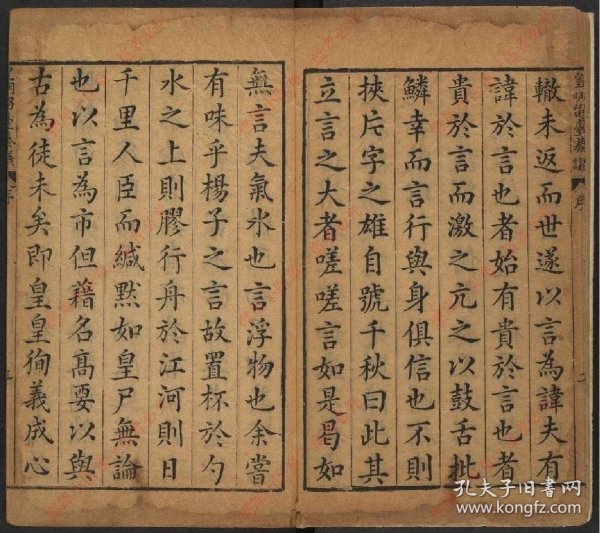 轍未返而世遂以言為諱夫有
諱於言也者始有貴於言也者
貴於言而激之亢之以鼓舌批
鱗幸而言行與身俱信也不則
挾片字之雄自號千秋曰此其
立言之大者嗟嗟言如是曷如
無言夫氣水也言浮物也余嘗
有味乎楊子之言故置杯於勺
水之上則膠行舟於江河則日
千里人臣而緘默如皇尸無論
也以言為市但藉名高要以與
古為徒未矣即皇皇徇義成心
孔夫子旧书网
www.kongfz.com